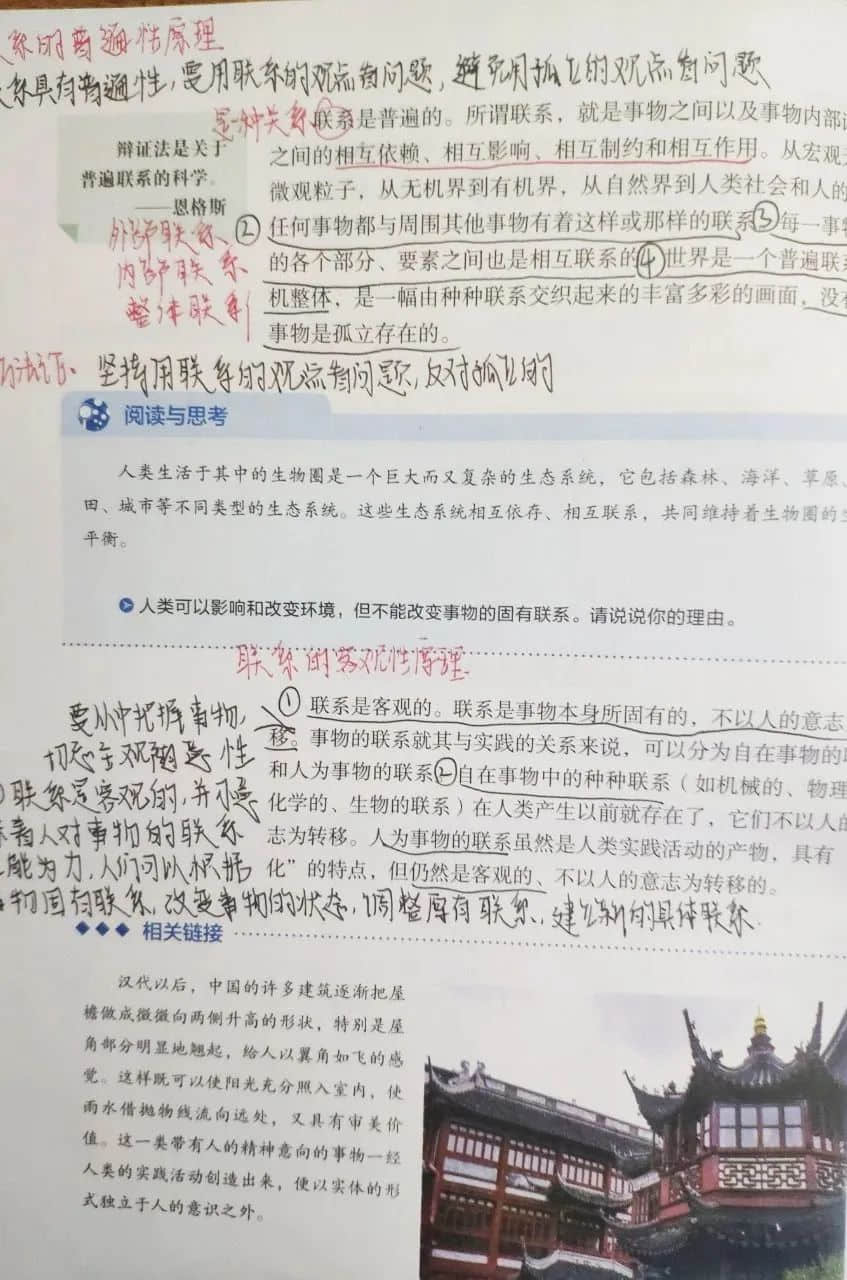 系的普遍性原理
系具有普遍性，要用联系的观点看问题，避免用孤立的观点看问题
是一种关系①联系是普遍的。所谓联系，就是事物之间以及事物内部
之间的相互依赖、相互影响、相互制约和相互作用。从宏观
微观粒子，从无机界到有机界，从自然界到人类社会和人的
②任何事物都与周围其他事物有着这样或那样的联系③每一事
的各个部分、要素之间也是相互联系的④世界是一个普遍联
机整体，是一幅由种种联系交织起来的丰富多彩的画面，没
事物是孤立存在的。
辩证法是关于
普遍联系的科学。
——恩格斯
外部联系、
内部联系
整体联系
方法论：坚持用联系的观点看问题，反对孤立的
阅读与思考
人类生活于其中的生物圈是一个巨大而又复杂的生态系统，它包括森林、海洋、草原、
田、城市等不同类型的生态系统。这些生态系统相互依存、相互联系，共同维持着生物圈的
平衡。
人类可以影响和改变环境，但不能改变事物的固有联系。请说说你的理由。
联系的客观性原理
①联系是客观的。联系是事物本身所固有的，不以人的意志
移。事物的联系就其与实践的关系来说，可以分为自在事物的
和人为事物的联系②自在事物中的种种联系（如机械的、物理
化学的、生物的联系）在人类产生以前就存在了，它们不以人的
志为转移。人为事物的联系虽然是人类实践活动的产物，具有
化”的特点，但仍然是客观的、不以人的意志为转移的。
要从中把握事物，
切忌主观随意性
联系是客观的，并不意
味着人对事物的联系
无能为力，人们可以根据
物固有联系，改变事物的状态，调整原有联系，建立新的具体联系
相关链接
汉代以后，中国的许多建筑逐渐把屋
檐做成微微向两侧升高的形状，特别是屋
角部分明显地翘起，给人以翼角如飞的感
觉。这样既可以使阳光充分照入室内，使
雨水借抛物线流向远处，又具有审美价
值。这一类带有人的精神意向的事物一经
人类的实践活动创造出来，便以实体的形
式独立于人的意识之外。